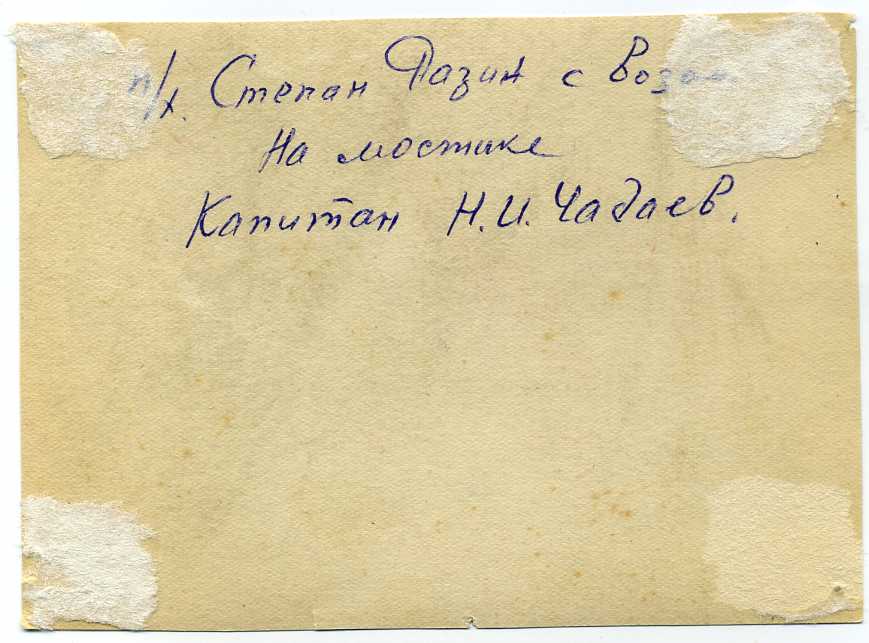 п/х. Степан Разин с возом
На мостике
Капитан Н.И. Чадаев.